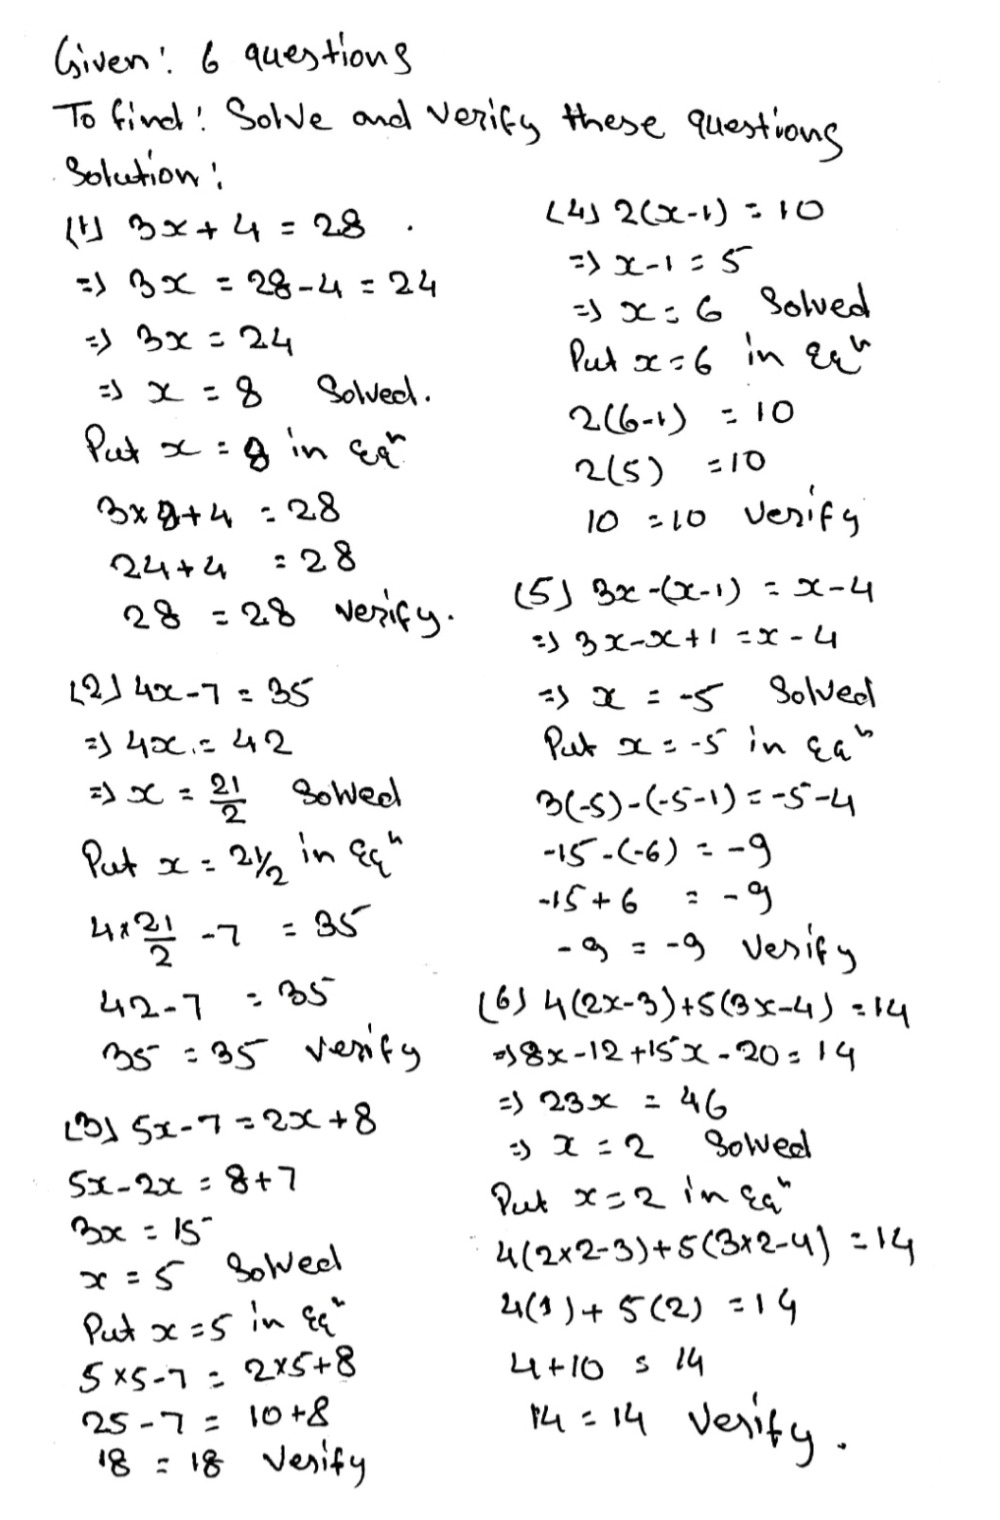 Given: 6 questions
To find: Solve and verify these questions
Solution:
(1) 3x + 4 = 28
=> 3x = 28-4 = 24
=> 3x = 24
=> x = 8 Solved.
Put x = 8 in Eqn
3x8+4 = 28
24+4 = 28
28 = 28 verify.
(2) 4x-7 = 35
=> 4x = 42
=> x = 21/2 Solved
Put x = 21/2 in Eqn
4x21/2 -7 = 35
42-7 = 35
35 = 35 verify
(3) 5x-7 = 2x+8
5x-2x = 8+7
3x = 15
x = 5 Solved
Put x=5 in Eqn
5x5-7 = 2x5+8
25-7 = 10+8
18 = 18 Verify
(4) 2(x-1) = 10
=> x-1 = 5
=> x = 6 Solved
Put x=6 in Eqn
2(6-1) = 10
2(5) = 10
10 = 10 Verify
(5) 3x-(x-1) = x-4
=> 3x-x+1 = x-4
=> x = -5 Solved
Put x = -5 in Eqn
3(-5)-(-5-1) = -5-4
-15-(-6) = -9
-15+6 = -9
-9 = -9 Verify
(6) 4(2x-3)+5(3x-4) = 14
=> 8x-12+15x-20 = 14
=> 23x = 46
=> x = 2 Solved
Put x=2 in Eqn
4(2x2-3)+5(3x2-4) = 14
4(1)+5(2) = 14
4+10 = 14
14 = 14 Verify.